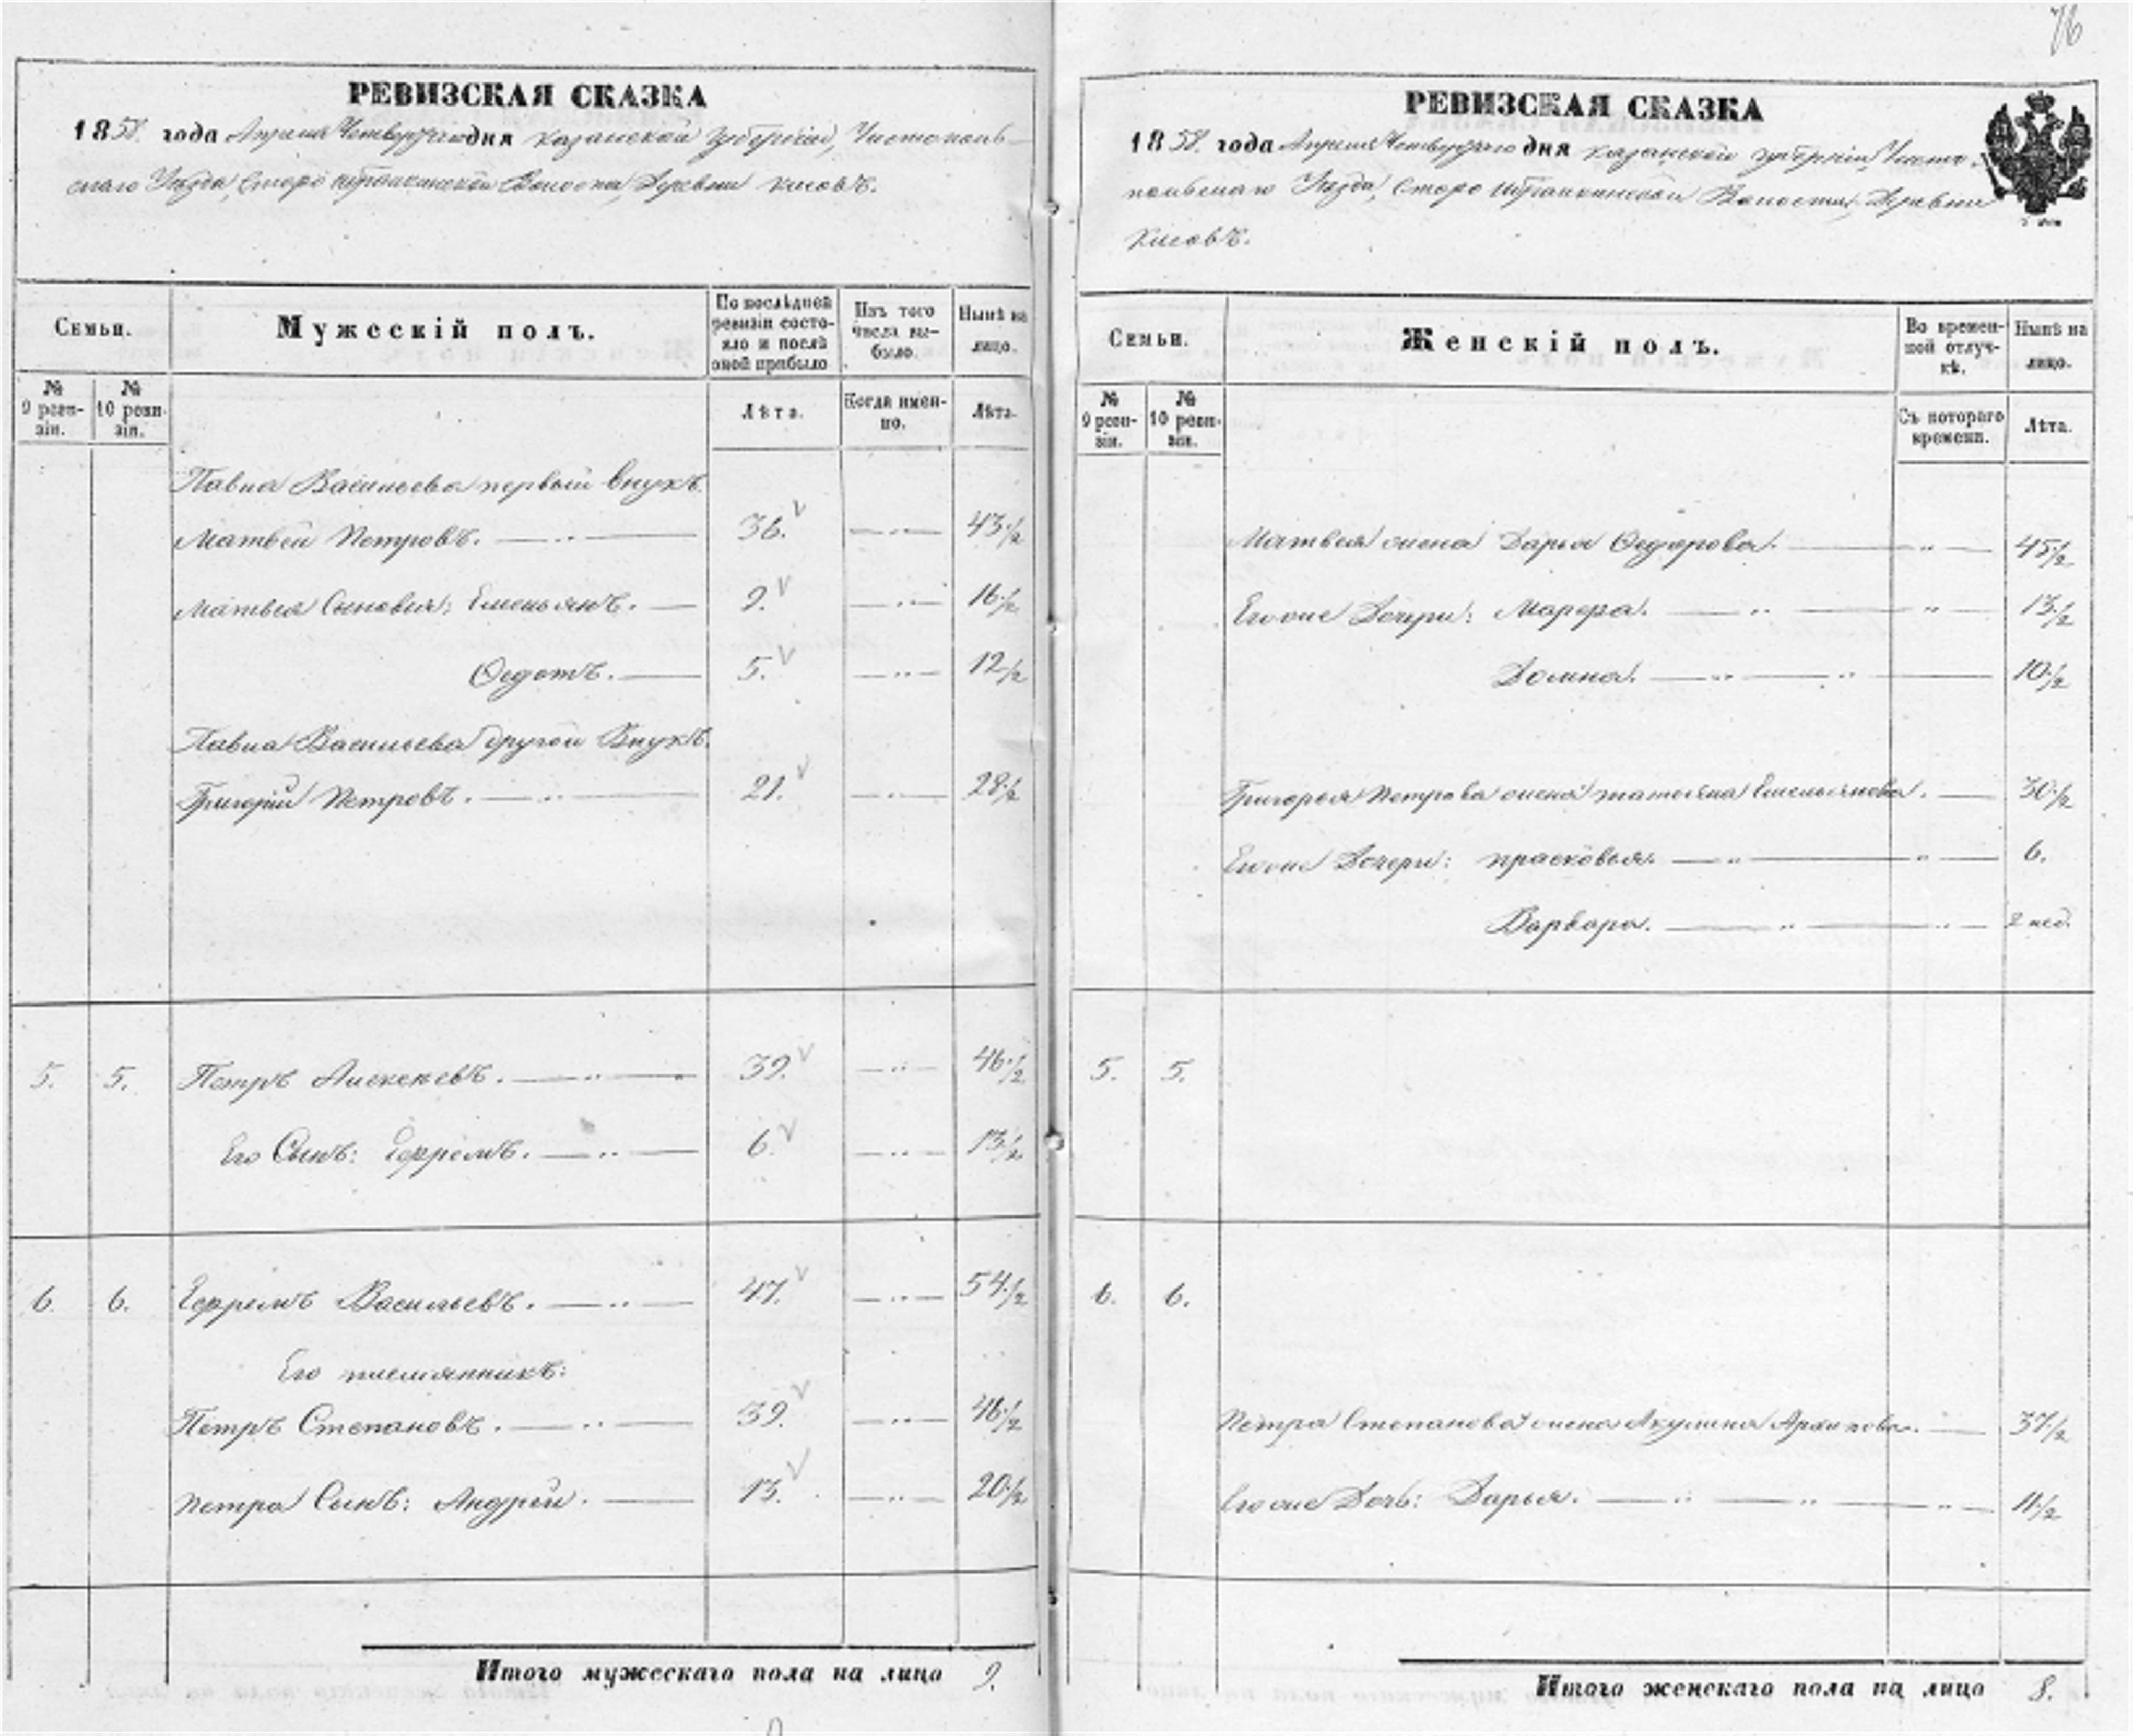 76
РЕВИЗСКАЯ СКАЗКА
1858. года Апреля Четвертаго дня Казанской Губерніи, Чистополь-
скаго Уѣзда, Старо Волости, Деревни Кисовъ.
Семьи.
Мужескій полъ.
По послѣдней ревизіи состояло и послѣ оной прибыло
Изъ того числа выбыло.
Нынѣ на лицо.
№ 9 ревизіи.
№ 10 ревизіи.
Лѣта.
Когда именно.
Лѣта.
Павла Васильева первый Внукъ
Матвей Петровъ. 36. 43½
Матвея Сыновья: Емельянъ. 9. 16½
Ѳедотъ. 5. 12½
Павла Васильева другой Внукъ.
Григорій Петровъ. 21. 28½
5. 5. Петръ Алексеевъ. 39. 46½
Его Сынъ: Ефремъ. 6. 13½
6. 6. Ефремъ Васильевъ. 47. 54½
Его племянникъ:
Петръ Степановъ. 39. 46½
Петра Сынъ: Андрей. 13. 20½
Итого мужескаго пола на лицо 9.
РЕВИЗСКАЯ СКАЗКА
1858. года Апреля Четвертаго дня Казанской губерніи, Чисто-
польскаго Уѣзда, Старо Волости, Деревни
Кисовъ.
Семьи.
Женскій полъ.
Во временной отлучкѣ.
Нынѣ на лицо.
№ 9 ревизіи.
№ 10 ревизіи.
Съ котораго времени.
Лѣта.
Матвея жена Дарья Ѳедорова. 45½
Его же Дочери: Марфа. 13½
Домна. 10½
Григорья Петрова жена Татьяна Емельянова. 30½
Его же Дочери: Прасковья. 6.
Варвара. 2 нед.
5. 5.
6. 6.
Петра Степанова жена Акулина Архипова. 37½
Его же Дочь: Дарья. 11½
Итого женскаго пола на лицо 8.